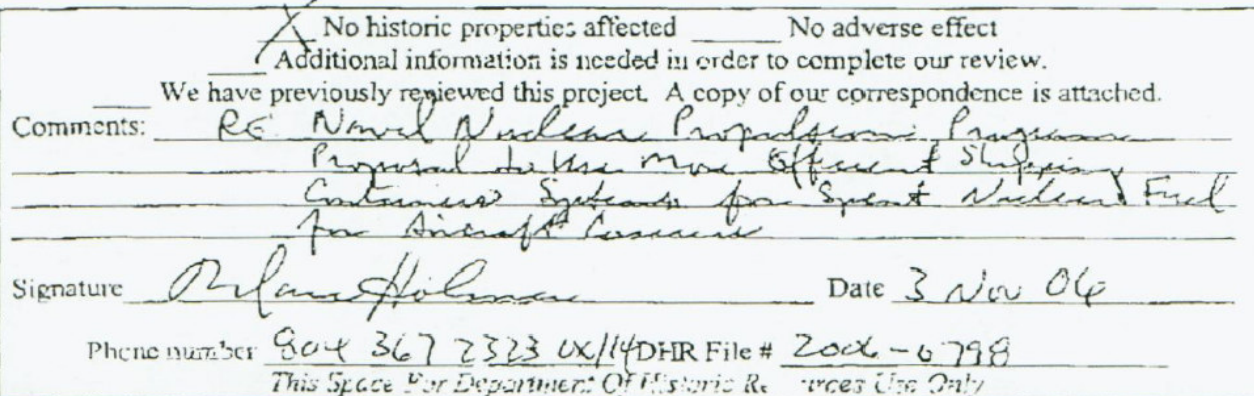 X No historic properties affected ______ No adverse effect
____ Additional information is needed in order to complete our review.
____ We have previously reviewed this project. A copy of our correspondence is attached.
Comments: RE Naval Nuclear Propulsion Program
Proposal to Use More Efficient Shipping
Container Systems for Spent Nuclear Fuel
for Aircraft
Signature Holma Date 3 Nov 06
Phone number 804 367 2323 DHR File # 2006-0798
This Space For Department Of Historic Re urces Use Only